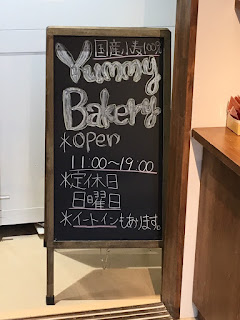 国産小麦100%
Yummy
Bakery
*open
11:00~19:00
*定休日
日曜日
*イートインもあります。